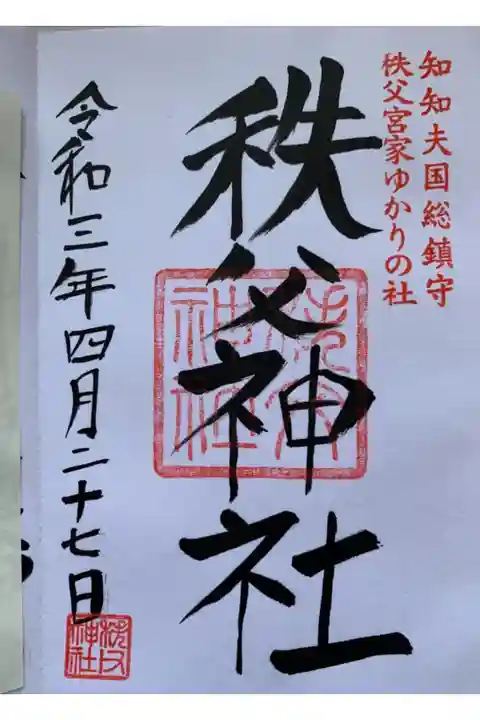 知知夫国総鎮守
秩父宮家ゆかりの社
秩父神社
令和三年四月二十七日
秩父神社
秩父神社